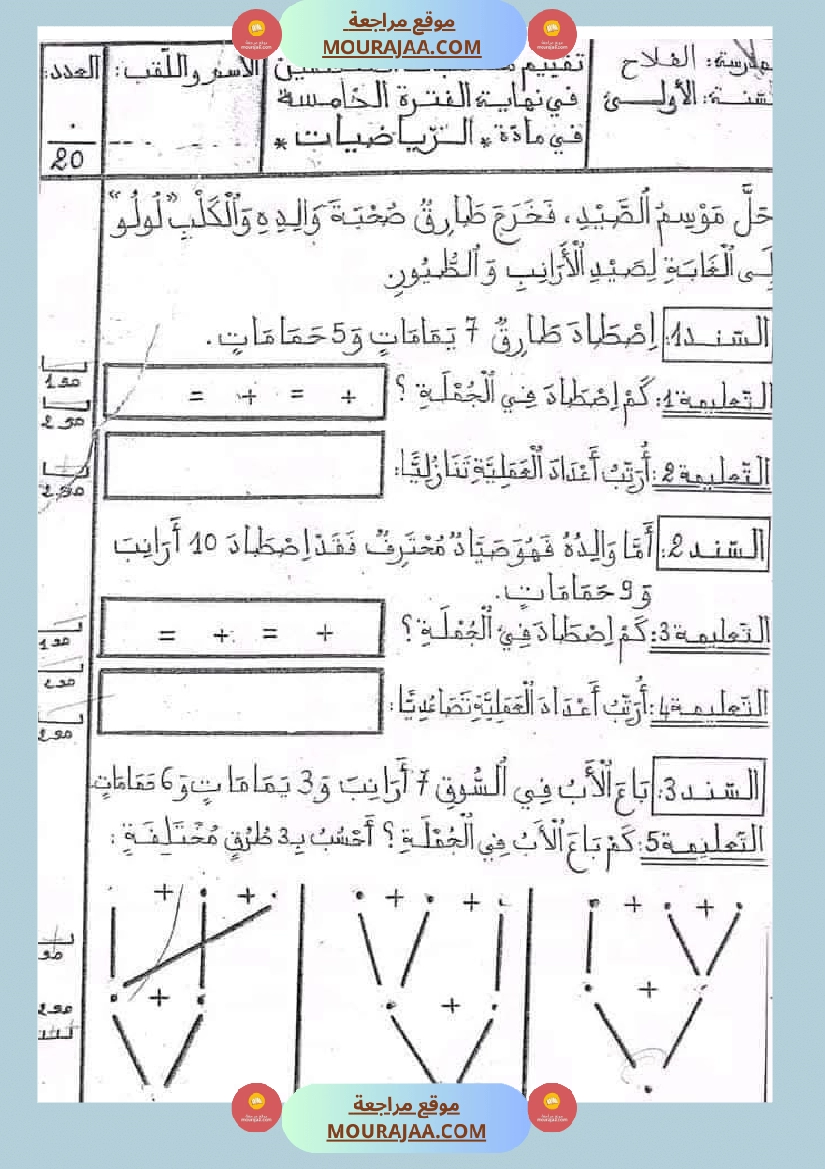 موقع مراجعة
MOURAJAA.COM
مدرسة: الفلاح
السّنة: الأولى
في نهاية الفترة الخامسة
في مادّة * الرّياضيات *
الاسم واللّقب:
العدد:
20
حَلَّ مَوْسِمُ الصَّيْدِ، فَخَرَجَ طَارِقُ صُحْبَةَ وَالِدِهِ وَالْكَلْبِ "لُولُو"
إِلَى الْغَابَةِ لِصَيْدِ الْأَرَانِبِ وَ الطُّيُورِ
السّند1: اِصْطَادَ طَارِقُ 7 يَمَامَاتٍ وَ5 حَمَامَاتٍ.
التّعليمة1: كَمْ اِصْطَادَ فِي الْجُمْلَةِ ؟
+ = + =
التّعليمة2: أُرَتِّبُ أَعْدَادَ الْعَمَلِيَّةِ تَنَازُلِيًّا:
السّند2: أَمَّا وَالِدُهُ فَهُوَ صَيَّادٌ مُحْتَرِفٌ فَقَدْ اِصْطَادَ 10 أَرَانِبَ
وَ 9 حَمَامَاتٍ.
التّعليمة3: كَمْ اِصْطَادَ فِي الْجُمْلَةِ ؟
+ = + =
التّعليمة4: أُرَتِّبُ أَعْدَادَ الْعَمَلِيَّةِ تَصَاعُدِيًّا:
السّند3: بَاعَ الْأَبُ فِي السُّوقِ 7 أَرَانِبَ وَ3 يَمَامَاتٍ وَ6 حَمَامَاتٍ
التّعليمة5: كَمْ بَاعَ الْأَبُ فِي الْجُمْلَةِ ؟ أَحْسُبُ بِـ3 طُرُقٍ مُخْتَلِفَةٍ :
+ + + + + +
+ + +
موقع مراجعة
MOURAJAA.COM